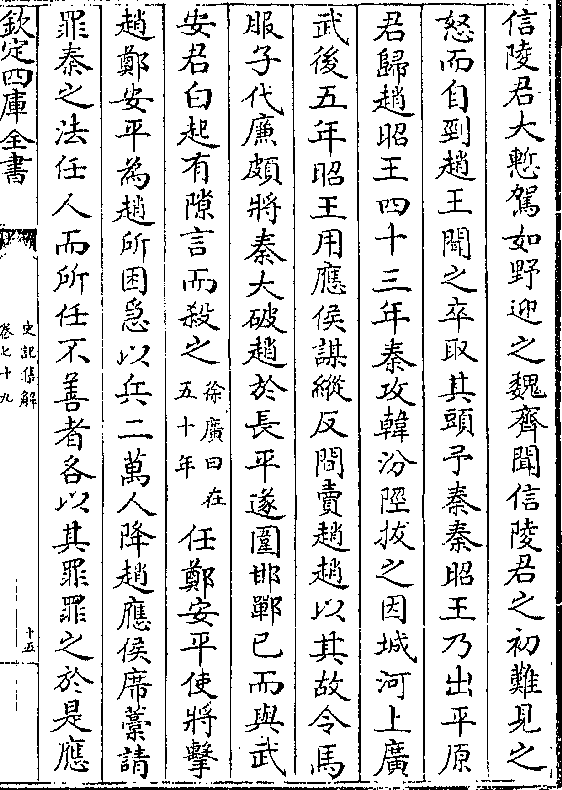 信陵君大慙駕如野迎之魏齊聞信陵君之初難見之
怒而自剄趙王聞之卒取其頭予秦秦昭王乃出平原
君歸趙昭王四十三年秦攻韓汾陘拔之因城河上廣
武後五年昭王用應侯謀縱反間賣趙趙以其故令馬
服子代廉頗將秦大破趙於長平遂圍邯鄲已而與武
安君白起有隙言而殺之徐廣曰在五十年任鄭安平使將擊
趙鄭安平為趙所困急以兵二萬人降趙應侯席藁請
罪秦之法任人而所任不善者各以其罪罪之於是應
欽定四庫全書
史記集解
卷七十九
十五